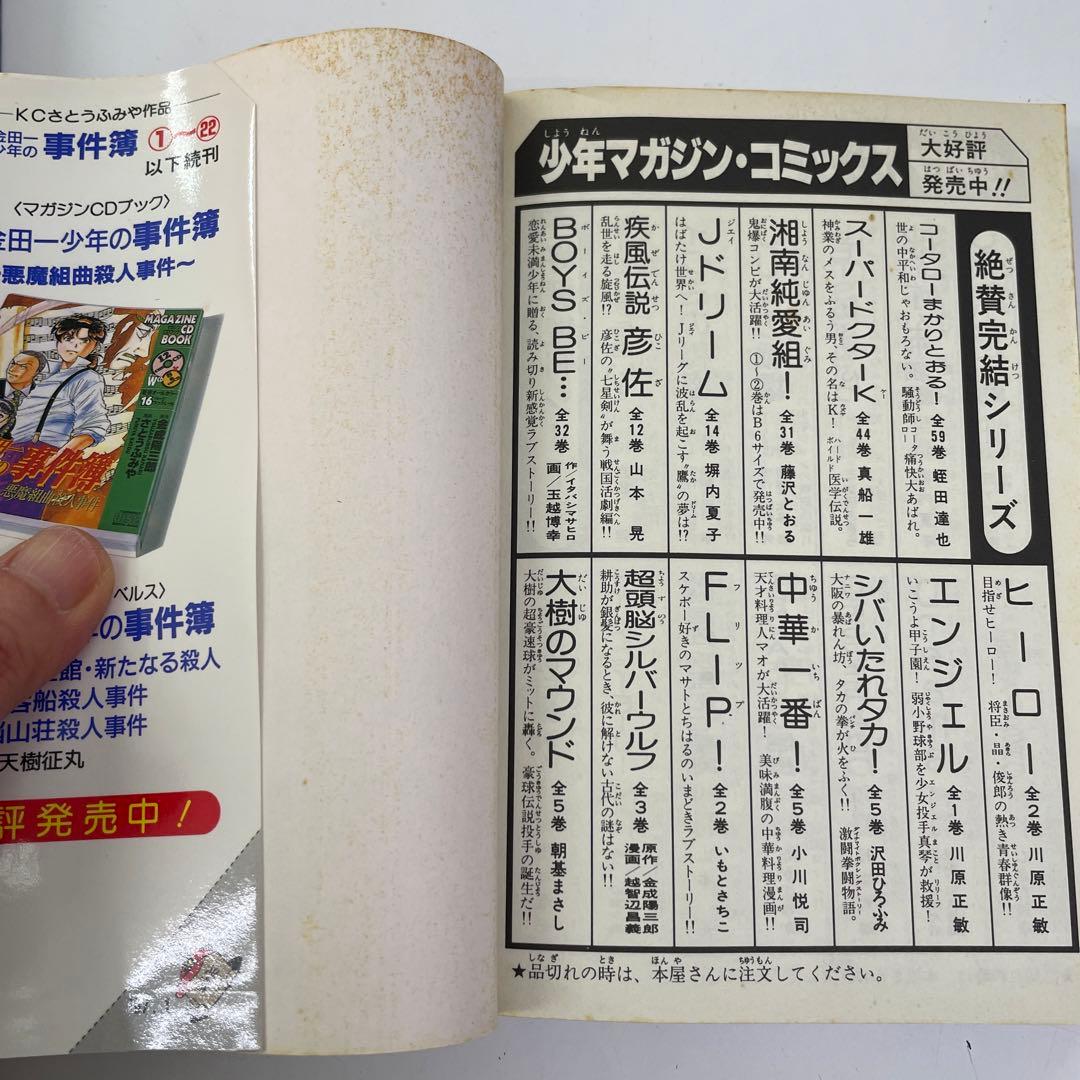 KCさとうふみや作品
金田一少年の事件簿 ①〜㉒
以下続刊
〈マガジンCDブック〉
金田一少年の事件簿
〜悪魔組曲殺人事件〜
MAGAZINE CD BOOK
事件簿
悪魔組曲殺人事件
さとうふみや
ベルス〉
年の事件簿
館・新たなる殺人
客船殺人事件
山荘殺人事件
天樹征丸
評発売中!
少年マガジン・コミックス
大好評
発売中!!
絶賛完結シリーズ
コータローまかりとおる! 全59巻 蛭田達也
世の中平和じゃおもろない。騒動師コータ痛快大あばれ。
スーパードクターK 全44巻 真船一雄
神業のメスをふるう男、その名はK! ハードボイルド医学伝説。
湘南純愛組! 全31巻 藤沢とおる
鬼爆コンビが大活躍!! ①〜②巻はB6サイズで発売中!!
Jドリーム 全14巻 塀内夏子
はばたけ世界へ! Jリーグに波乱を起こす“鷹”の夢は!?
疾風伝説 彦佐 全12巻 山本 晃
乱世を走る旋風!? 彦佐の“七星剣”が舞う戦国活劇編!!
BOYS BE… 全32巻 作/イタバシマサヒロ 画/玉越博幸
恋愛未満少年に贈る、読み切り新感覚ラブストーリー!!
ヒーロー 全2巻 川原正敏
目指せヒーロー! 将臣・晶・俊郎の熱き青春群像!!
エンジェル 全1巻 川原正敏
いこうよ甲子園! 弱小野球部を少女投手真琴が救援!
シバいたれタカ! 全5巻 沢田ひろふみ
大阪の暴れん坊、タカの拳が火をふく!! 激闘拳闘物語。
中華一番! 全5巻 小川悦司
天才料理人マオが大活躍! 美味満腹の中華料理漫画!!
FLIP! 全2巻 いもとさちこ
スケボー好きのマサトとちはるのいまどきラブストーリー!!
超頭脳シルバーウルフ 全3巻 原作/金成陽三郎 漫画/越智辺昌義
耕助が銀髪になるとき、彼に解けない古代の謎はない!!
大樹のマウンド 全5巻 朝基まさし
大樹の超豪速球がミットに轟く。豪球伝説投手の誕生だ!!
★品切れの時は、本屋さんに注文してください。